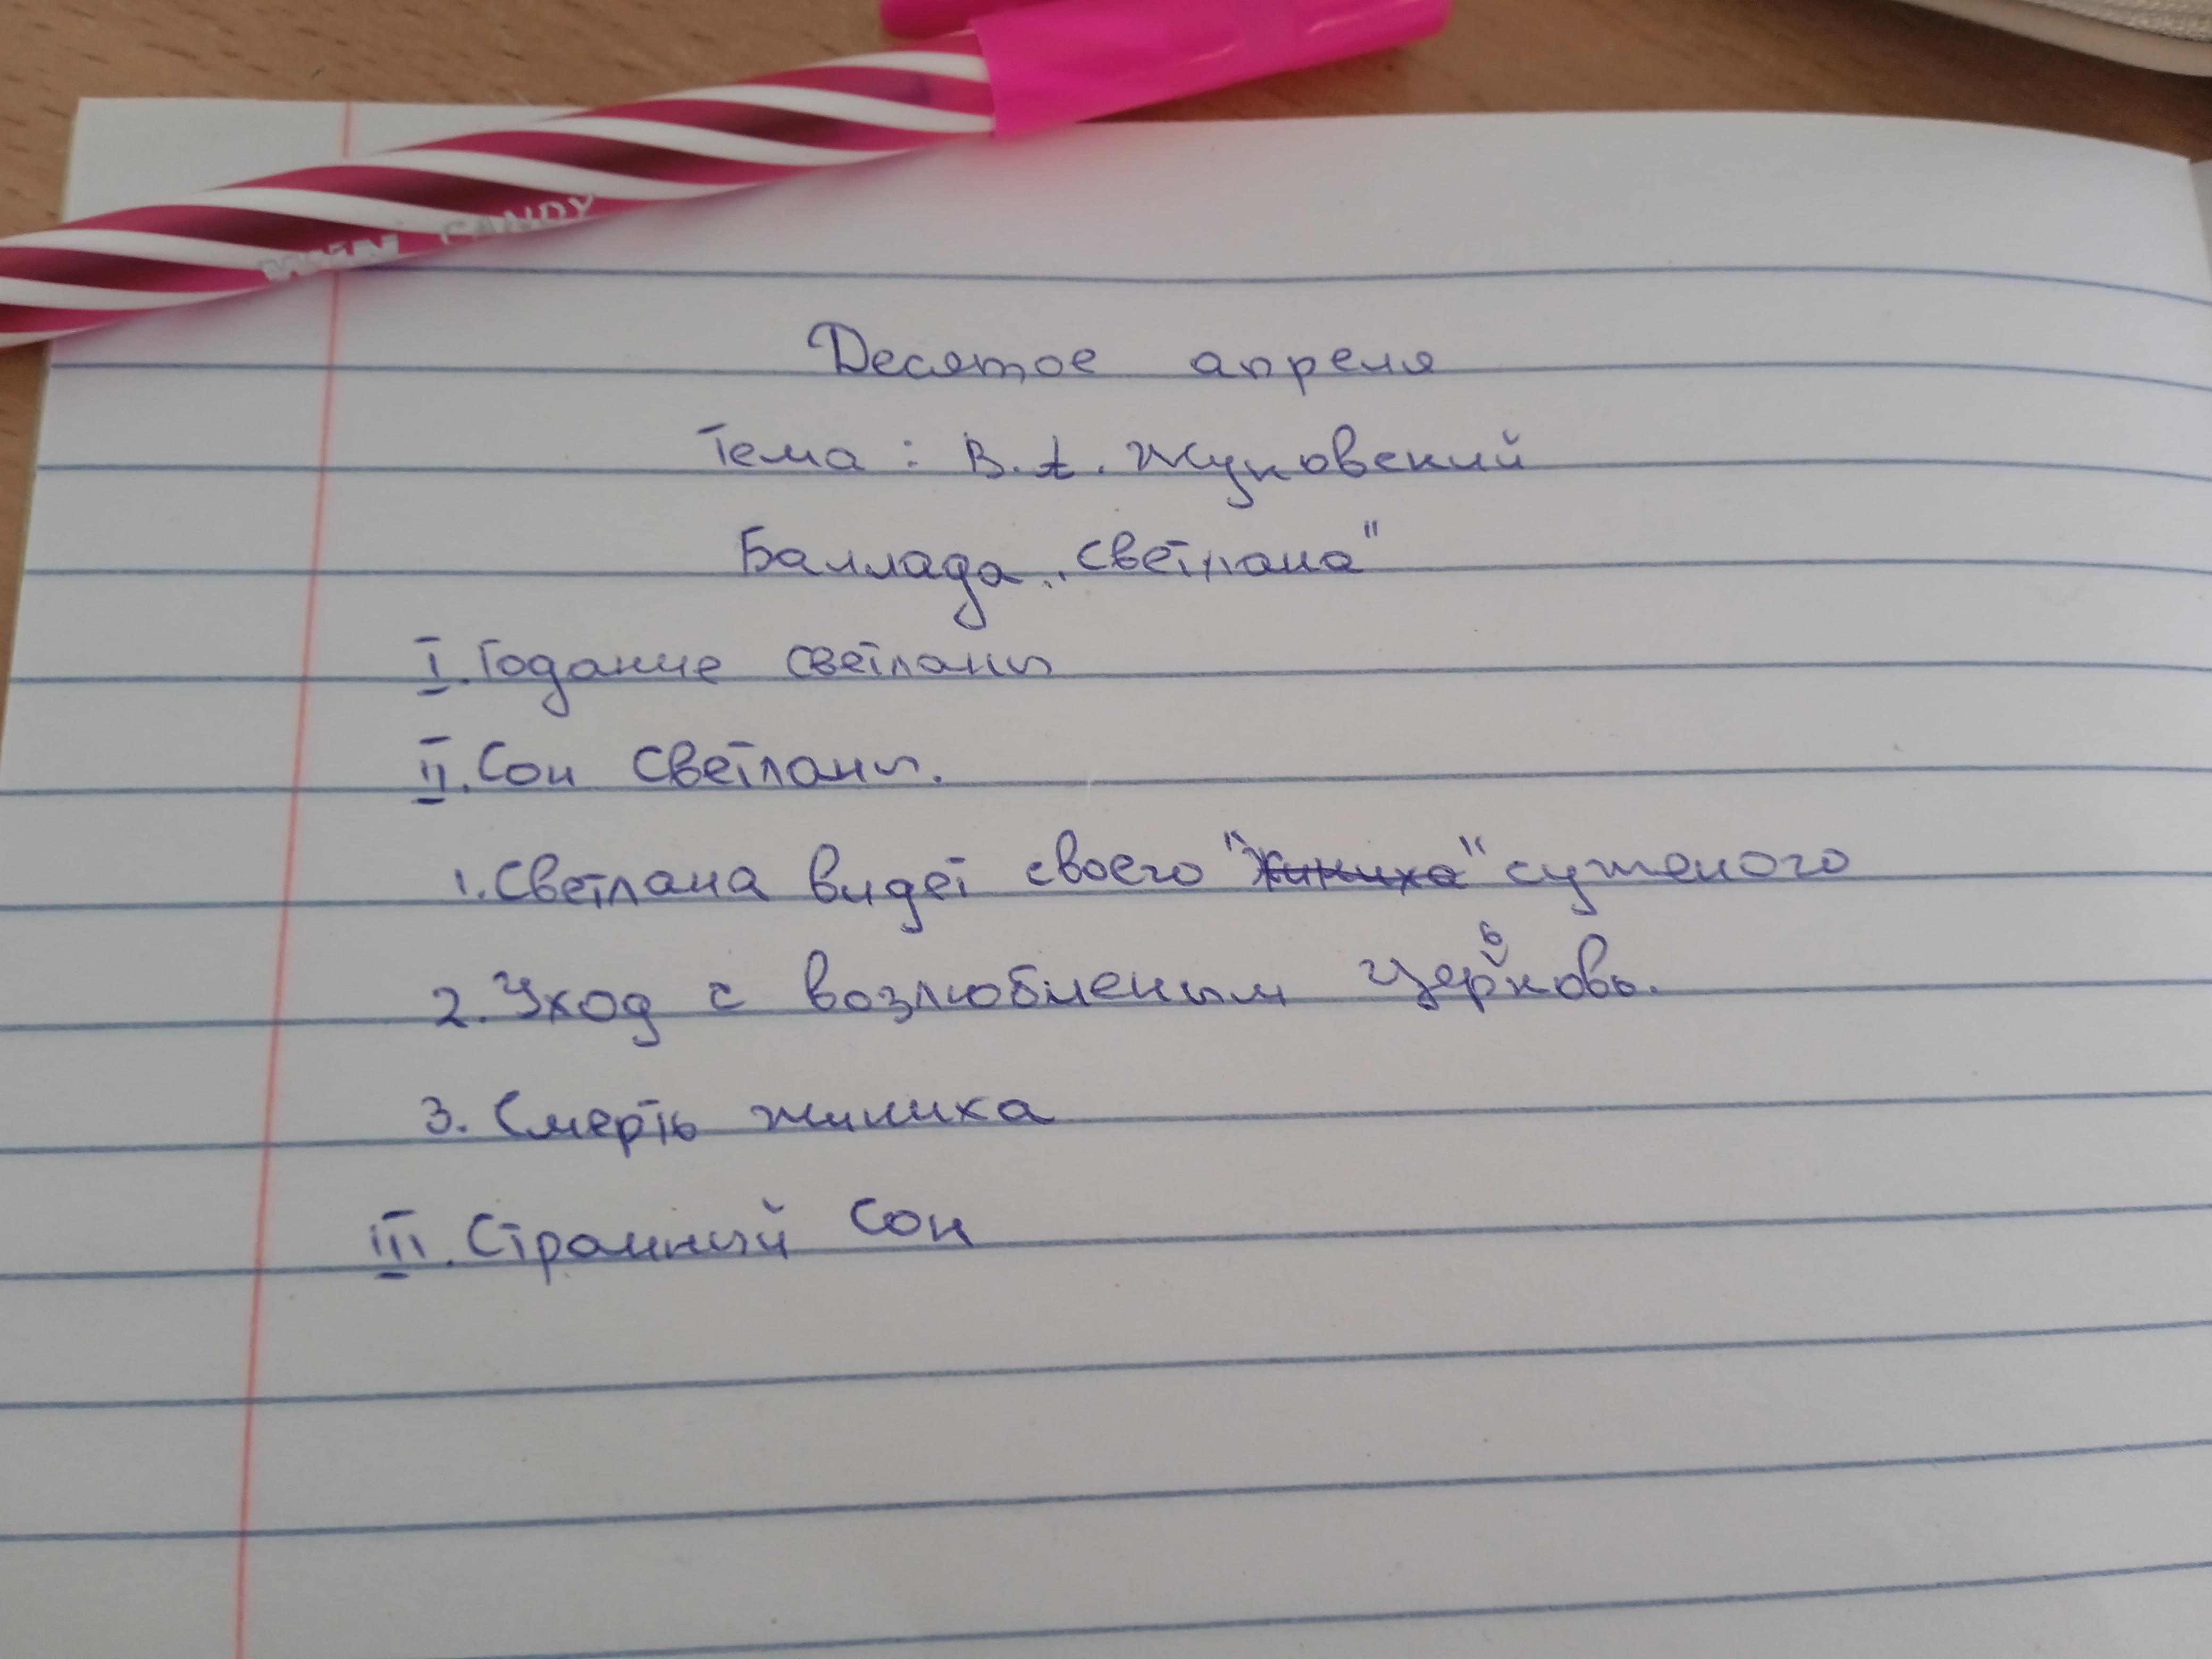 WIN CANDY
Десятое апреля
Тема: В.А. Жуковский
Баллада „Светлана"
I. Годание светланы
II. Сон Светланы.
1. Светлана видет своего "жиниха" суженого
2. Уход с возлюбленым церьковь.
3. Смерть жиниха
III. Странный Сон